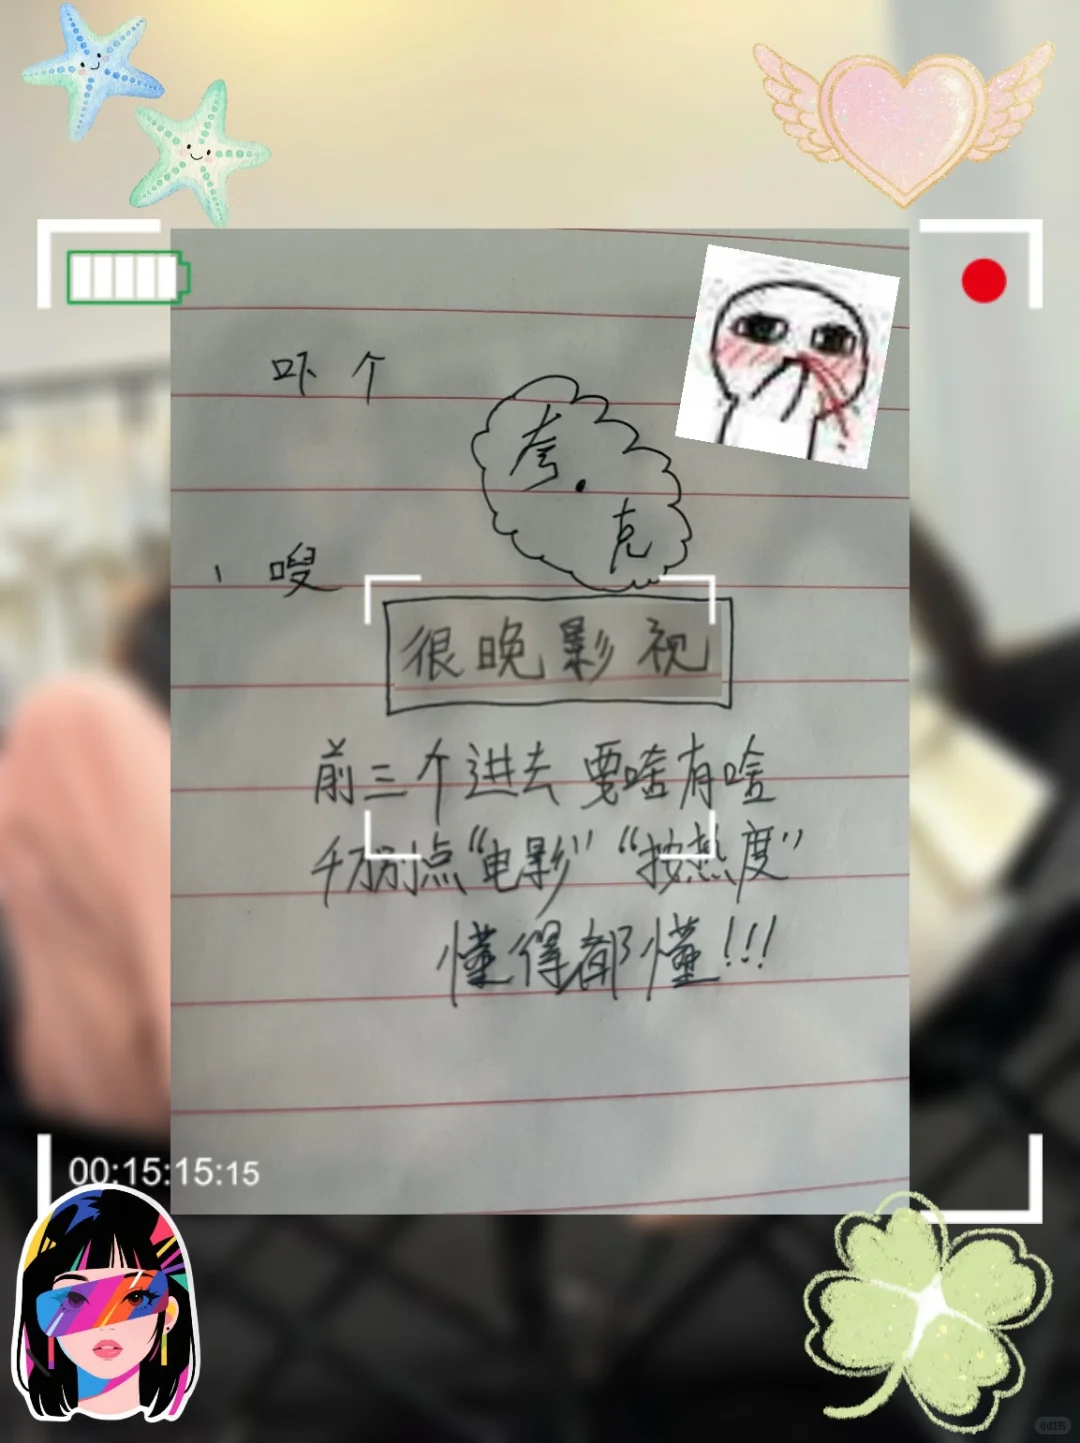 吓个
夸.克
、嗖
很晚影视
前三个进去 要啥有啥
千万别点“电影”“按热度”
懂得都懂!!!
00:15:15:15